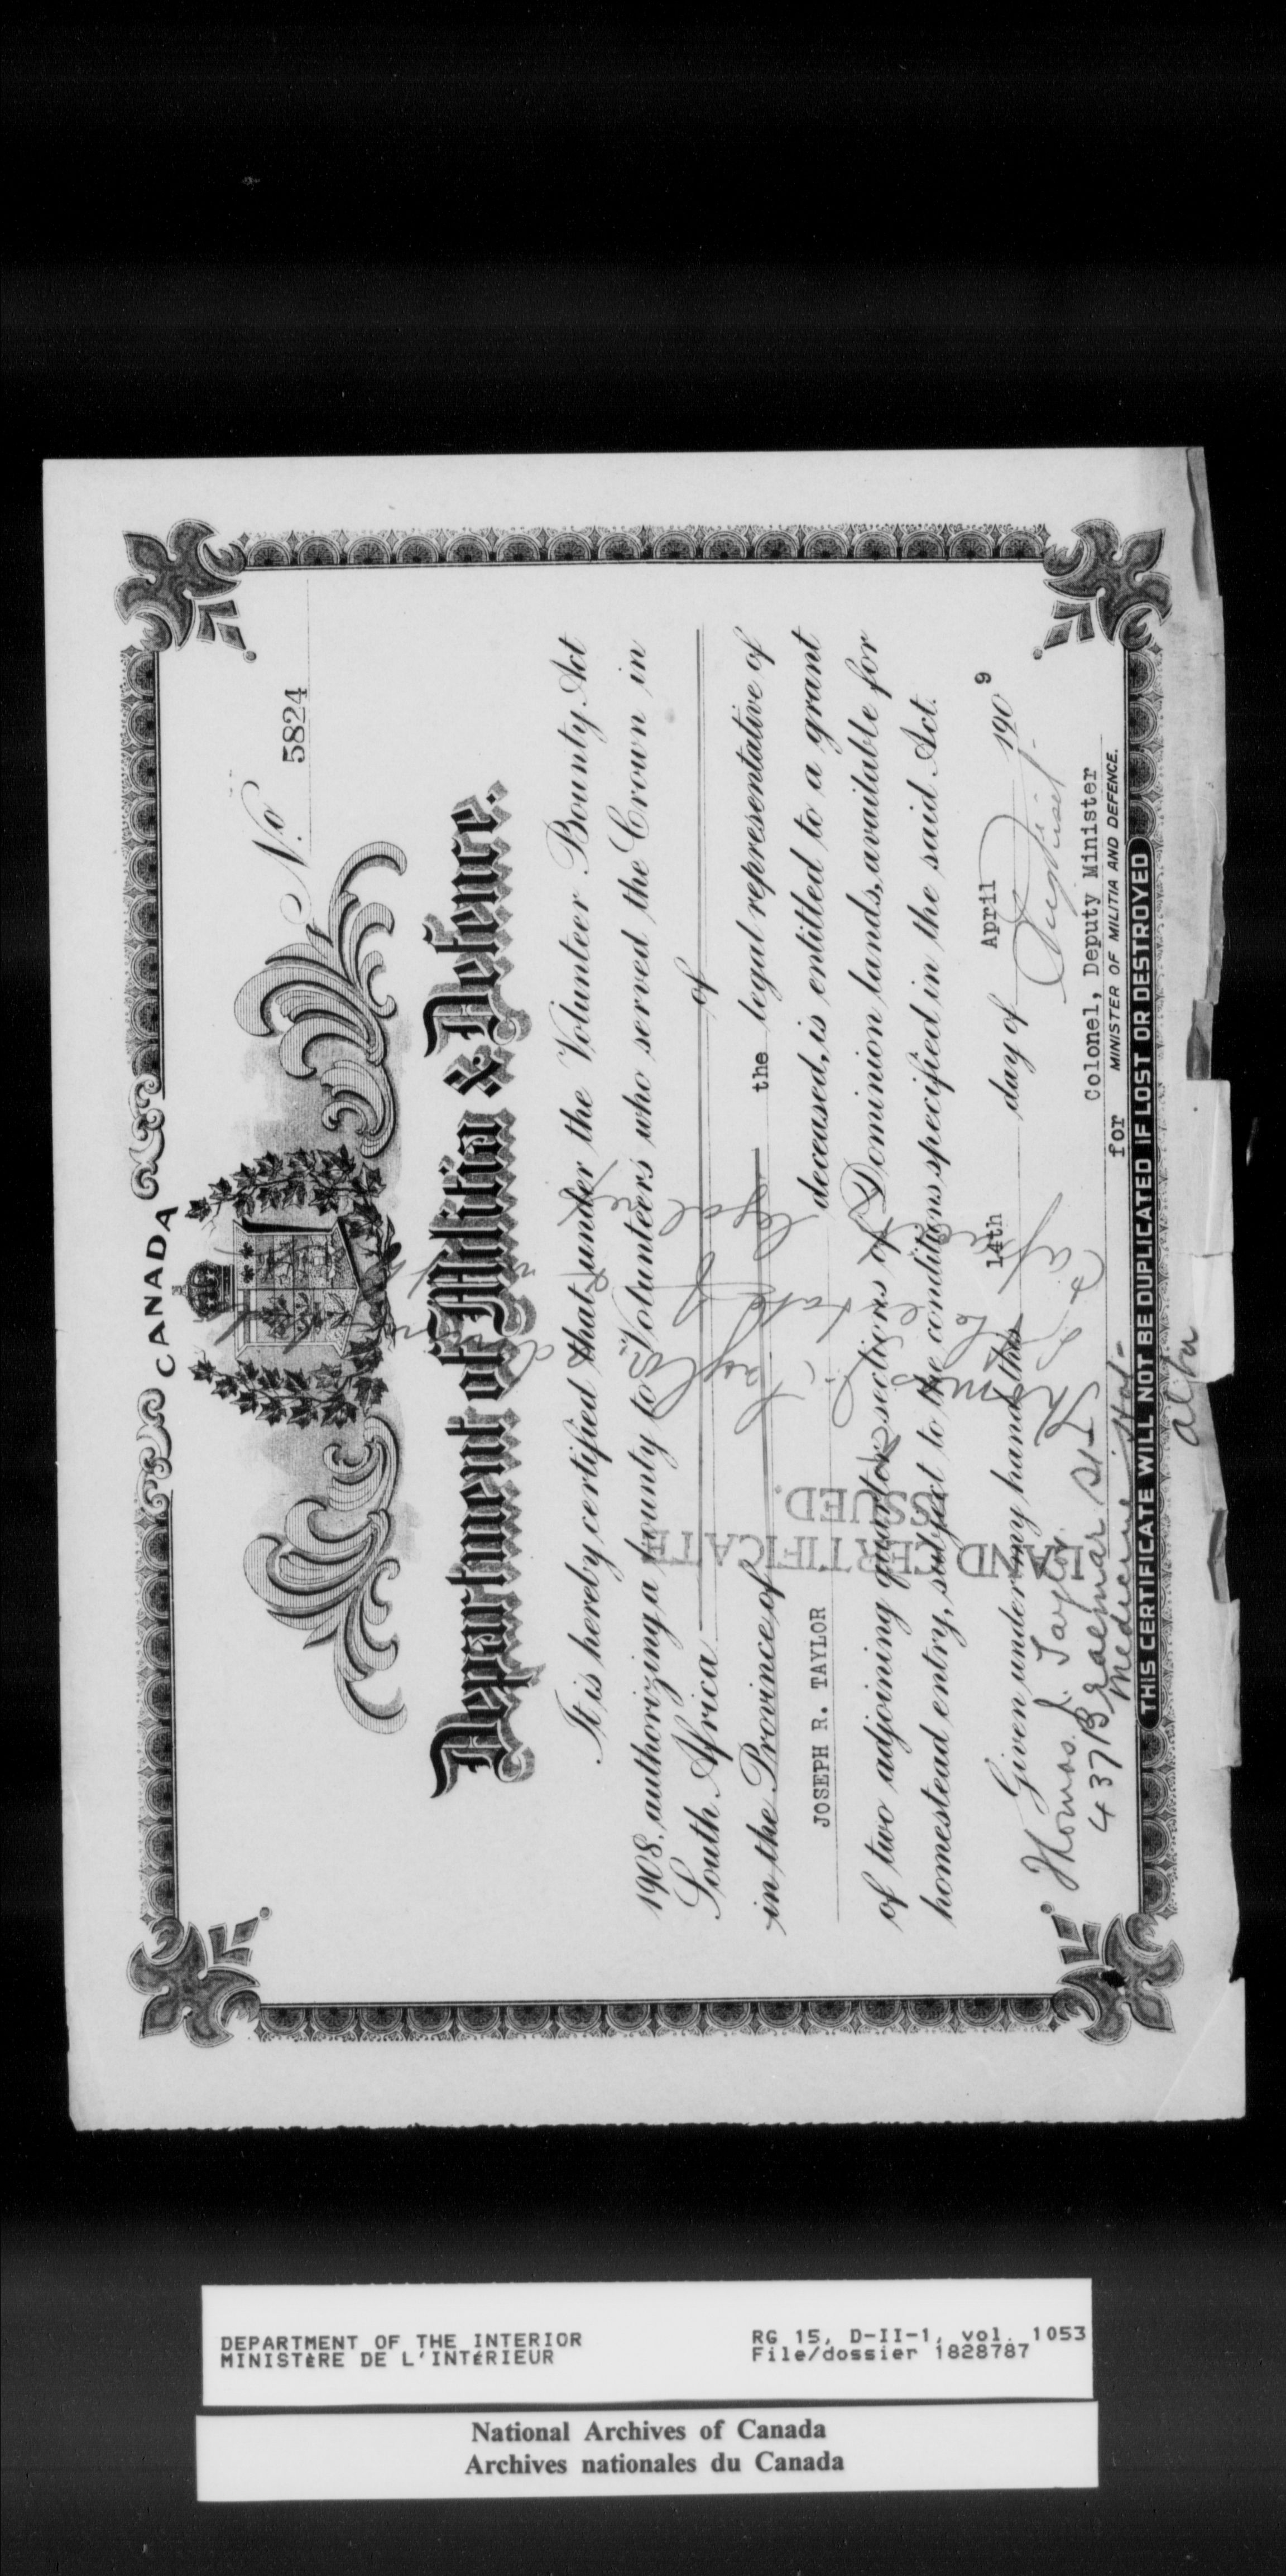 CANADA
No. 5824
Department of Militia & Defence.
It is hereby certified that under the Volunteer Bounty Act
1908, authorizing a bounty to Volunteers who served the Crown in
South Africa of
in the Province of the legal representative of
JOSEPH R. TAYLOR deceased, is entitled to a grant
of two adjoining quarter sections of Dominion lands, available for
homestead entry, subject to the conditions specified in the said Act.
Given under my hand this 14th day of April 1909
Colonel, Deputy Minister
for MINISTER OF MILITIA AND DEFENCE.
Thomas R. Taylor
437 Braemar St
Medicine Hat
Alta
THIS CERTIFICATE WILL NOT BE DUPLICATED IF LOST OR DESTROYED
LAND CERTIFICATE
ISSUED.
DEPARTMENT OF THE INTERIOR
MINISTÈRE DE L'INTÉRIEUR
RG 15, D-II-1, vol. 1053
File/dossier 1828787
National Archives of Canada
Archives nationales du Canada